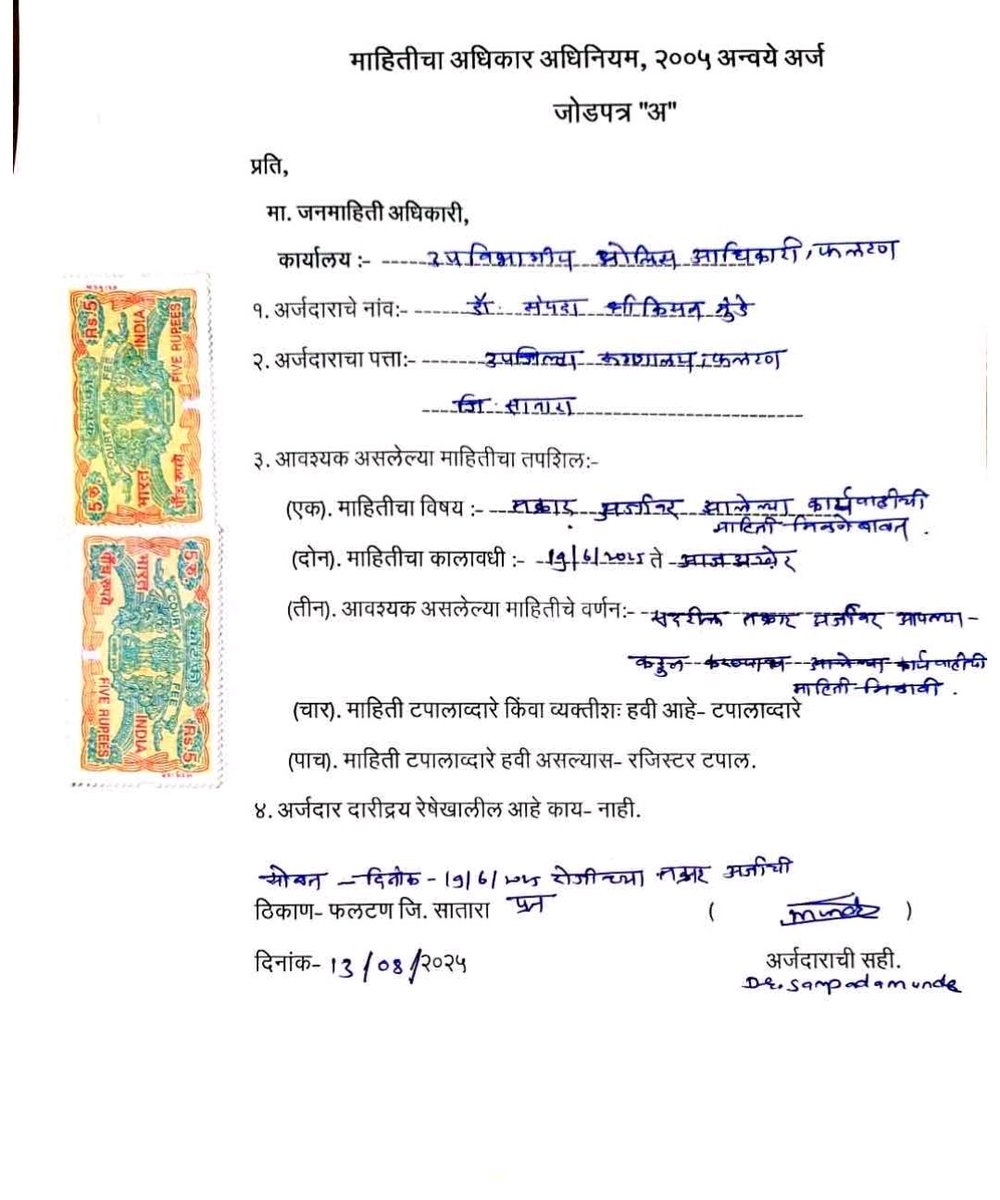 माहितीचा अधिकार अधिनियम, २००५ अन्वये अर्ज
जोडपत्र "अ"
प्रति,
मा. जनमाहिती अधिकारी,
कार्यालय :- उपविभागीय पोलिस अधिकारी, फलटण
१. अर्जदाराचे नांव:- डॉ. संपदा श्रीकिसन मुंडे
२. अर्जदाराचा पत्ता:- उपजिल्हा रुग्णालय, फलटण
जि. सातारा
३. आवश्यक असलेल्या माहितीचा तपशिल:-
(एक). माहितीचा विषय :- तक्रार अर्जावर झालेल्या कार्यवाहीची
माहिती मिळणेबाबत .
(दोन). माहितीचा कालावधी :- 19/6/2025 ते आजअखेर
(तीन). आवश्यक असलेल्या माहितीचे वर्णन:- सदरील तक्रार अर्जावर आपल्या-
कडून करण्यात आलेल्या कार्यवाहीची
माहिती मिळावी .
(चार). माहिती टपालाव्दारे किंवा व्यक्तीशः हवी आहे- टपालाव्दारे
(पाच). माहिती टपालाव्दारे हवी असल्यास- रजिस्टर टपाल.
४. अर्जदार दारीद्रय रेषेखालील आहे काय- नाही.
सोबत - दिनांक - 19/6/2025 रोजीच्या तक्रार अर्जाची
ठिकाण- फलटण जि. सातारा प्रत
( munde )
दिनांक- 13/08/२०२५
अर्जदाराची सही.
Dr. Sampada munde
Rs.5
INDIA
FIVE RUPEES
COURT FEE
कोर्ट फी
भारत
5 रु.
पाँच रुपये
5 रु.
पाँच रुपये
भारत
कोर्ट फी
COURT FEE
FIVE RUPEES
INDIA
Rs.5